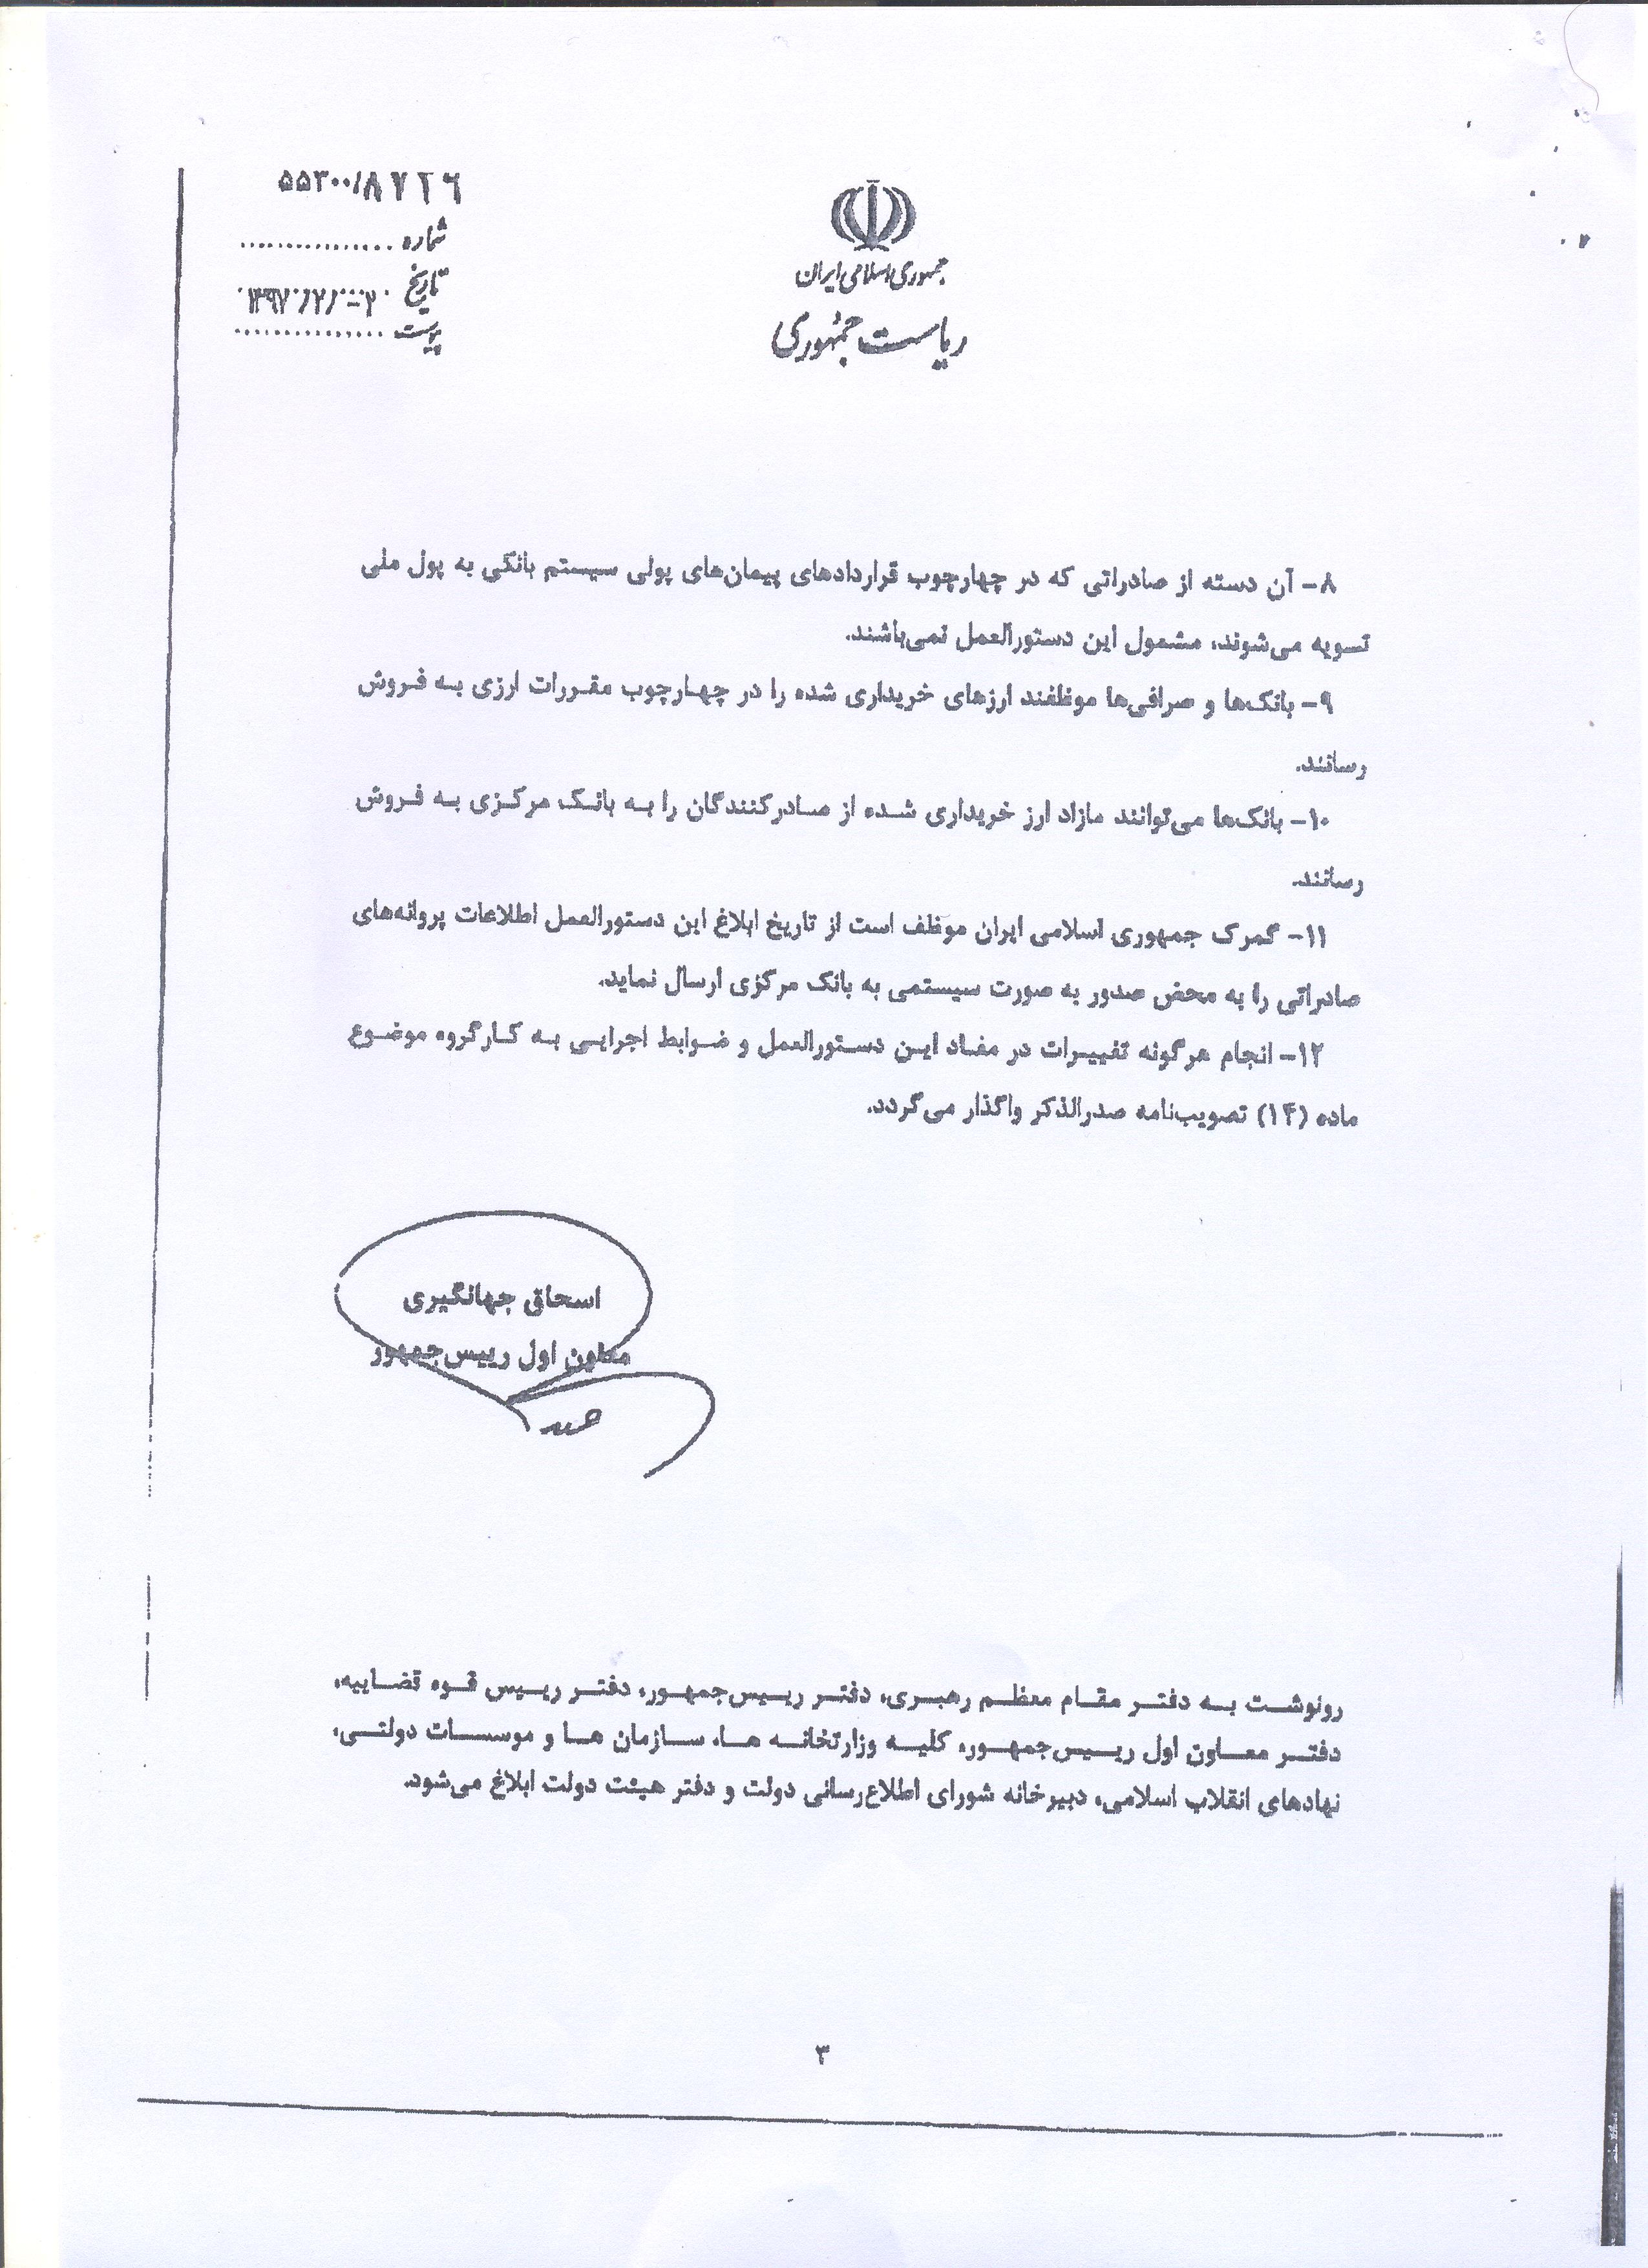 ۵۵۳۰۰/۸۷۲۶
شماره
تاریخ ۱۳۹۷/۲/۰۲
پیوست
جمهوری اسلامی ایران
ریاست جمهوری
۸- آن دسته از صادراتی که در چهارچوب قراردادهای پیمان‌های پولی سیستم بانکی به پول ملی
تسویه می‌شوند، مشمول این دستورالعمل نمی‌باشند.
۹- بانک‌ها و صرافی‌ها موظفند ارزهای خریداری شده را در چهارچوب مقررات ارزی به فروش
رسانند.
۱۰- بانک‌ها می‌توانند مازاد ارز خریداری شده از صادرکنندگان را به بانک مرکزی به فروش
رسانند.
۱۱- گمرک جمهوری اسلامی ایران موظف است از تاریخ ابلاغ این دستورالعمل اطلاعات پروانه‌های
صادراتی را به محض صدور به صورت سیستمی به بانک مرکزی ارسال نماید.
۱۲- انجام هرگونه تغییرات در مفاد این دستورالعمل و ضوابط اجرایی به کارگروه موضوع
ماده (۱۴) تصویب‌نامه صدرالذکر واگذار می‌گردد.
اسحاق جهانگیری
معاون اول رییس‌جمهور
رونوشت به دفتر مقام معظم رهبری، دفتر رییس‌جمهور، دفتر رییس قوه قضاییه،
دفتر معاون اول رییس‌جمهور، کلیه وزارتخانه ها، سازمان ها و موسسات دولتی،
نهادهای انقلاب اسلامی، دبیرخانه شورای اطلاع‌رسانی دولت و دفتر هیئت دولت ابلاغ می‌شود.
۳